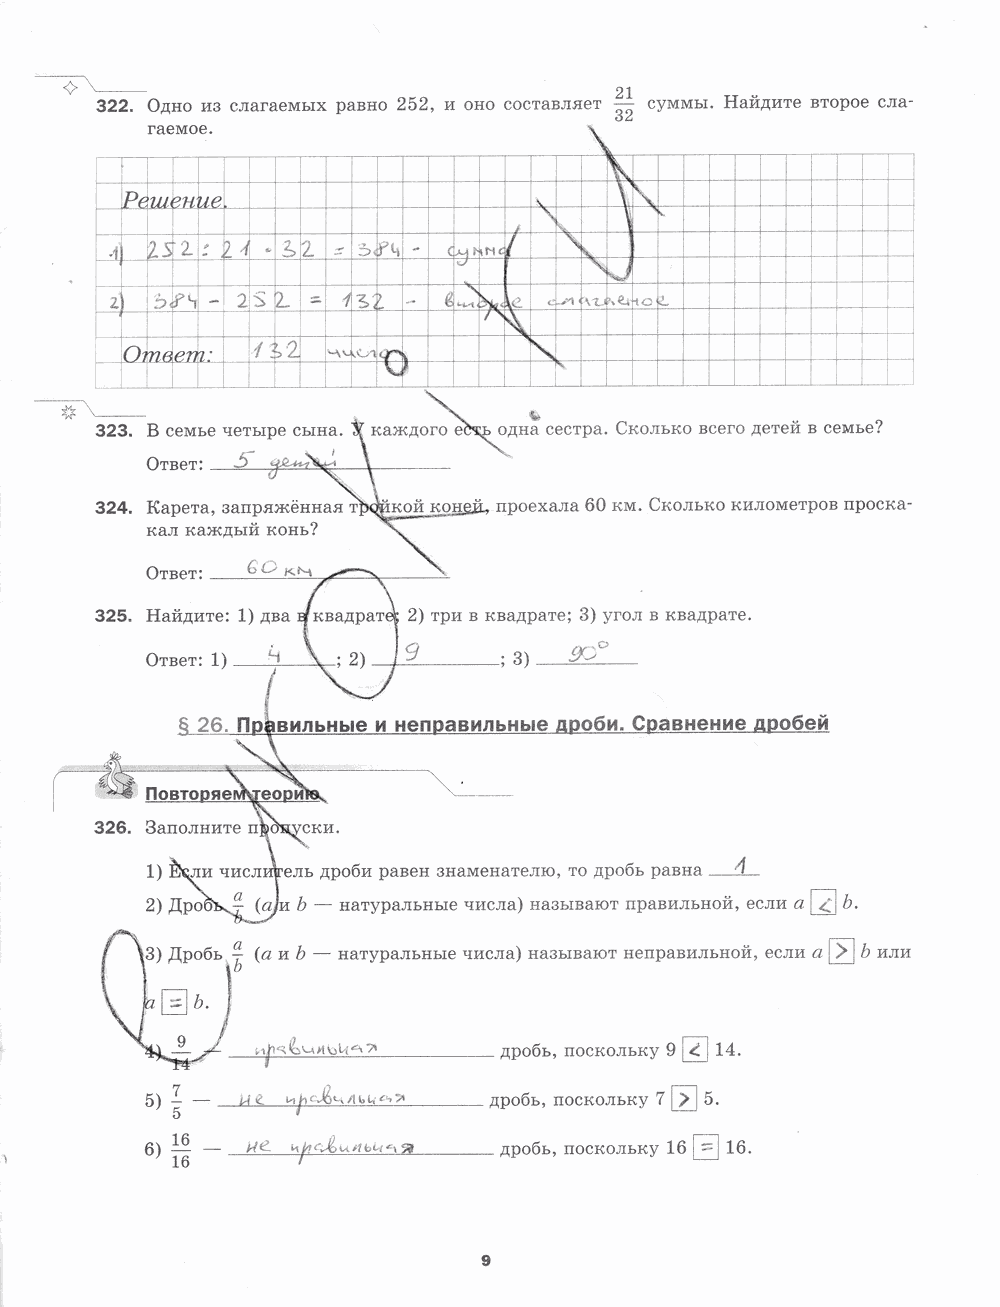 322. Одно из слагаемых равно 252, и оно составляет 21/32 суммы. Найдите второе сла-
гаемое.
Решение.
1) 252 : 21 · 32 = 384 - сумма
2) 384 - 252 = 132 - второе слагаемое
Ответ: 132 число
323. В семье четыре сына. У каждого есть одна сестра. Сколько всего детей в семье?
Ответ: 5 детей
324. Карета, запряжённая тройкой коней, проехала 60 км. Сколько километров проска-
кал каждый конь?
Ответ: 60 км
325. Найдите: 1) два в квадрате; 2) три в квадрате; 3) угол в квадрате.
Ответ: 1) 4 ; 2) 9 ; 3) 90°
§ 26. Правильные и неправильные дроби. Сравнение дробей
Повторяем теорию
326. Заполните пропуски.
1) Если числитель дроби равен знаменателю, то дробь равна 1
2) Дробь a/b (a и b — натуральные числа) называют правильной, если a < b.
3) Дробь a/b (a и b — натуральные числа) называют неправильной, если a > b или
a = b.
4) 9/14 — правильная дробь, поскольку 9 < 14.
5) 7/5 — не правильная дробь, поскольку 7 > 5.
6) 16/16 — не правильная дробь, поскольку 16 = 16.
9